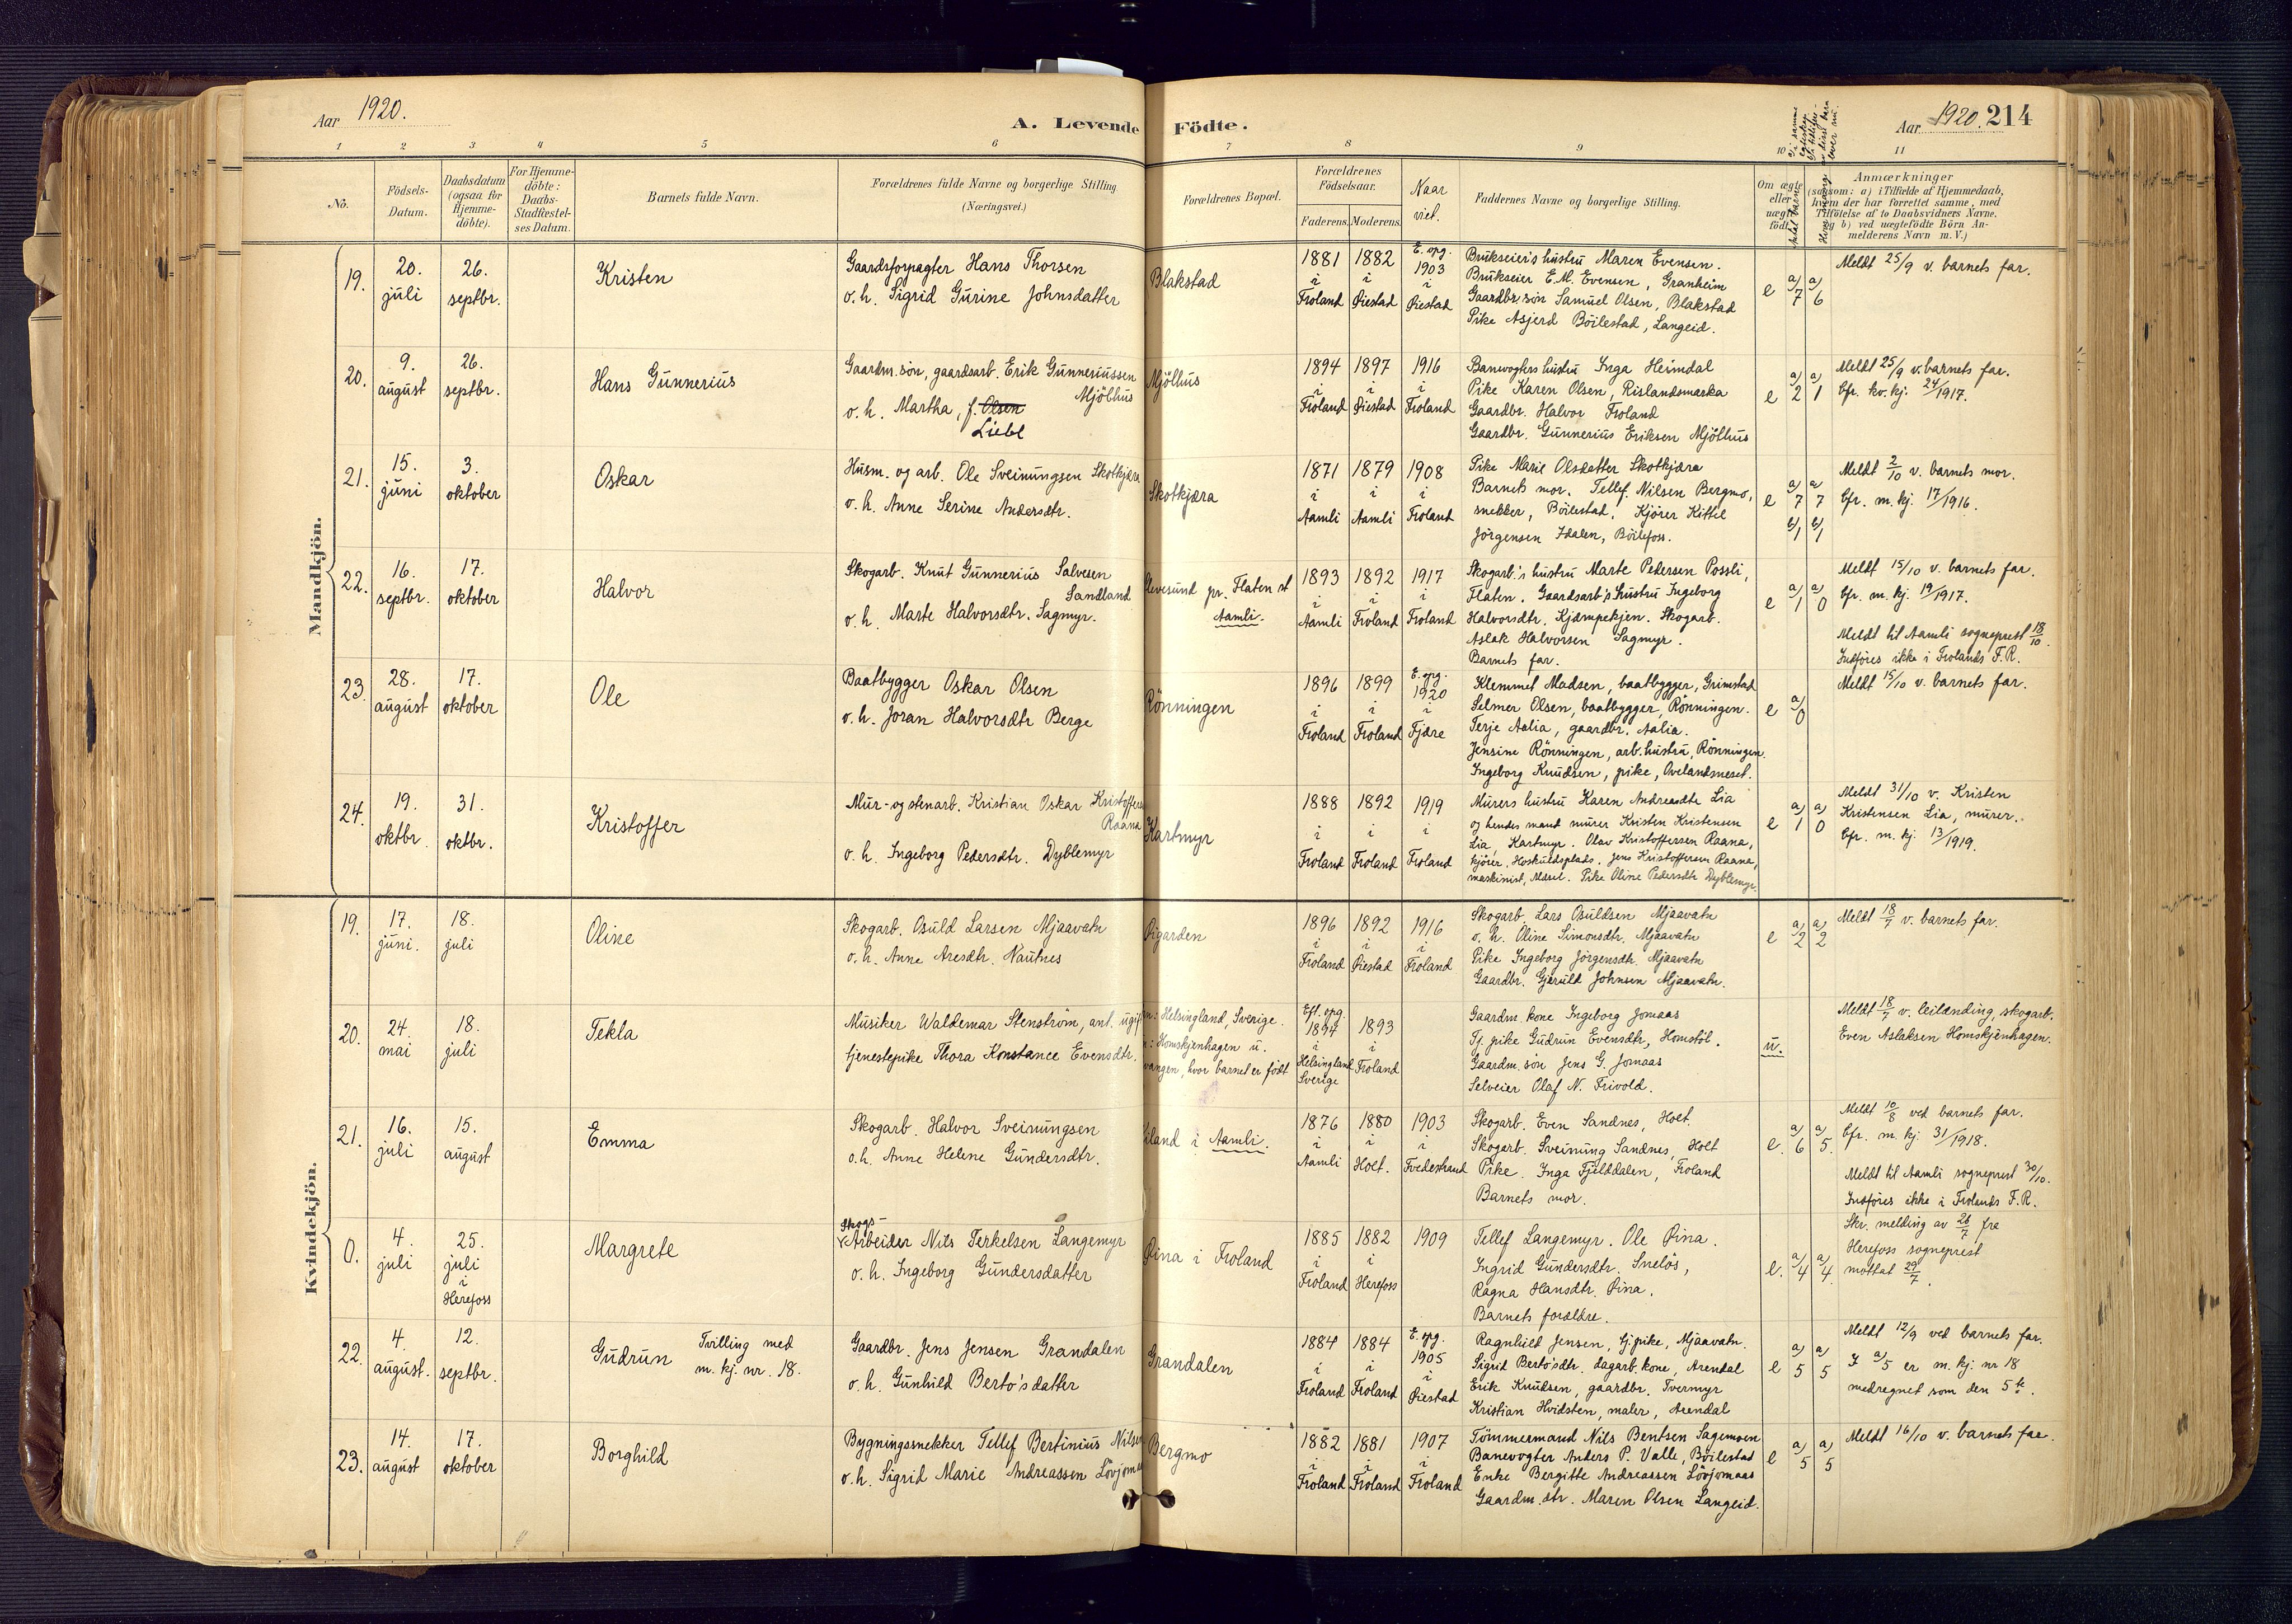 Aar 1920.
A. Levende Födte.
Aar 1920. 214
1 2 3 4 5 6 7 8 9 10 11
No.
Födsels-Datum.
Daabsdatum (ogsaa for Hjemme-döbte).
For Hjemme-döbte: Daabs-Stadfæstel-ses Datum.
Barnets fulde Navn.
Forældrenes fulde Navne og borgerlige Stilling (Næringsvei.)
Forældrenes Bopæl.
Forældrenes Födselsaar.
Faderens. Moderens.
Naar viet.
Faddernes Navne og borgerlige Stilling.
Om ægte eller uægte födt.
Anmærkninger
(saasom: a) i Tilfælde af Hjemmedaab, hvem der har forrettet samme, med Tilföielse af to Daabsvidners Navne, og b) ved uægtefödte Börn An-melderens Navn m. V.)
Mandkjön.
19.
20. juli
26. septbr.
Kristen
Gaardsforpagter Hans Thorsen
o. h. Sigrid Gurine Johnsdatter
Blakstad
1881 i Froland
1882 i Øiestad
E. opg. 1903 i Øiestad
Brukseier's hustru Maren Evensen.
Brukseier E. M. Evensen, Granheim
Gaardbr. søn Samuel Olsen, Blakstad
Pike Asjerd Böilestad, Langeid.
e a/7 a/6
Meldt 25/9 v. barnets far.
20.
9. august
26. septbr.
Hans Gunnerius
Gaardm. søn, gaardsarb. Erik Gunneriussen
Mjölhus
o. h. Martha, f. Olsen
Liebl
Mjölhus
1894 i Froland
1897 i Øiestad
1916 i Froland
Banevogters hustru Inga Heimdal
Pike Karen Olsen, Rislandsmarka
Gaardbr. Halvor Froland
Gaardbr. Gunnerius Eriksen Mjölhus
e a/2 a/1
Meldt 25/9 v. barnets far.
Cfr. kv. kj. 24/1917.
21.
15. juni
3. oktober
Oskar
Husm. og arb. Ole Sveinungsen Skotkjæra
o. h. Anne Serine Andersdtr.
Skotkjæra
1871 i Aamli
1879 i Aamli
1908 i Froland
Pike Marie Olsdatter Skotkjæra
Barnets mor. Tellef Nilsen Bergmo,
snekker, Böilestad. Kjörer Kittel
Jörgensen Idalen, Böilefoss.
e a/7 a/7
b/1 b/1
Meldt 2/10 v. barnets mor.
Cfr. m. kj. 17/1916.
22.
16. septbr.
17. oktober
Halvor
Skogarb. Knut Gunnerius Salvesen
Sandland
o. h. Marte Halvorsdtr. Sagmyr.
Clevesund pr. Flaten st
Aamli.
1893 i Aamli
1892 i Froland
1917 i Froland
Skogarb.'s hustru Marte Pedersen Possli,
Flaten. Gaardsarb's hustru Ingeborg
Halvorsdtr. Kjæmpekjen. Skogarb.
Aslak Halvorsen Sagmyr.
Barnets far.
e a/1 a/0
Meldt 15/10 v. barnets far.
Cfr. m. kj. 19/1917.
Meldt til Aamli sogneprest 18/10.
Indføres ikke i Frolands F. R.
23.
28. august
17. oktober
Ole
Baatbygger Oskar Olsen
o. h. Joran Halvorsdtr Berge
Rönningen
1896 i Froland
1899 i Froland
E. opg. 1920 i Fjære
Klemmet Madsen, baatbygger, Grimstad
Selmer Olsen, baatbygger, Rönningen.
Terje Aalia, gaardbr. Aalia.
Jensine Rönningen, arb. hustru, Rönningen.
Ingeborg Knudsen, pike, Ovelandmeset.
e a/0
Meldt 15/10 v. barnets far.
24.
19. oktbr.
31. oktbr.
Kristoffer
Mur- og stenarb. Kristian Oskar Kristoffersen
Raana
o. h. Ingeborg Pedersdtr. Dyblemyr
Kartmyr
1888 i Froland
1892 i Froland
1919 i Froland
Murers hustru Karen Andreasdtr Lia
og hendes mand murer Kristen Kristensen
Lia, Kartmyr. Olav Kristoffersen Raana,
kjörer, Hoskuldsplads. Jens Kristoffersen Raana,
maskinist, Mæsel. Pike Oline Pedersdtr Dyblemyr.
e a/1 a/0
Meldt 31/10 v. Kristen
Kristensen Lia, murer.
Cfr. m. kj. 13/1919.
Kvindekjön.
19.
17. juni.
18. juli
Oline
Skogarb. Osuld Larsen Mjaavatn
o. h. Anne Aresdtr. Nautnes
Øigarden
1896 i Froland
1892 i Øiestad
1916 i Froland
Skogarb. Lars Osuldsen Mjaavatn
o. h. Oline Simonsdtr. Mjaavatn
Pike Ingeborg Jörgensdtr. Mjaavatn
Gaardbr. Gjeruld Johnsen Mjaavatn.
e a/2 a/2
Meldt 18/7 v. barnets far.
20.
24. mai
18. juli
Tekla
Musiker Waldemar Stenström, ant. ugift
tjenestepike Thora Konstance Evensdtr.
: Helsingland, Sverige.
: Homskjenhagen u.
vangen, hvor barnet er født
Eft. opg. 1894 i Helsingland Sverige
1893 i Froland
Gaardm. kone Ingeborg Jomaas
Tj. pike Gudrun Evensdtr, Homstöl.
Gaardm. søn Jens G. Jomaas
Selveier Olaf N. Frivold.
u.
Meldt 18/7 v. leilænding, skogarb.
Even Aslaksen Homskjenhagen.
21.
16. juli
15. august
Emma
Skogarb. Halvor Sveinungsen
o. h. Anne Helene Gundersdtr.
iland i Aamli.
1876 i Aamli
1880 i Holt.
1903 i Tvedestrand
Skogarb. Even Sandnes, Holt.
Skogarb. Sveinung Sandnes, Holt
Pike. Inga Fjelddalen, Froland
Barnets mor.
e. a/6 a/5.
Meldt 10/8 ved barnets far.
Cfr. m. kj. 31/1918.
Meldt til Aamli sogneprest 30/10.
Indføres ikke i Frolands F. R.
0.
4. juli
25. juli i Herefoss
Margrete
Skogs-
Arbeider Nils Terkelsen Langemyr
o. h. Ingeborg Gundersdatter
Rina i Froland
1885 i Froland
1882 i Herefoss
1909
Tellef Langemyr. Ole Rina.
Ingrid Gundersdtr. Snelös,
Ragna Hansdtr. Rina.
Barnets forældre.
e. a/4 a/4.
Skr. melding av 26/7 fra
Herefoss sogneprest
mottat 29/7.
22.
4. august.
12. septbr.
Gudrun
Tvilling med
m. kj. nr. 18.
Gaardbr. Jens Jensen Grandalen
o. h. Gunhild Berto's datter
Grandalen
1884 i Froland
1884 i Froland
E. opg. 1905 i Øiestad
Ragnhild Jensen, tj. pike, Mjaavatn.
Sigrid Berto'sdtr. dagarb. kone, Arendal
Erik Knudsen, gaardbr. Tvermyr
Kristian Hvidsten, maler, Arendal
e a/5 a/5
Meldt 12/9 ved barnets far.
I a/5 er m. kj. nr 18
medregnet som den 5te.
23.
14. august
17. oktober
Borghild
Bygningssnekker Tellef Bertinius Nilsen
o. h. Sigrid Marie Andreassen Lövjomaas
Bergmo
1882 i Froland
1881 i Froland
1907 i Froland
Tömmermand Nils Bentsen Sagemoen
Banevogter Anders P. Valle, Böilestad
Enke Bergitte Andreassen Lövjomaas
Gaardm. dtr. Maren Olsen Langeid.
e a/5 a/5
Meldt 16/10 v. barnets far.